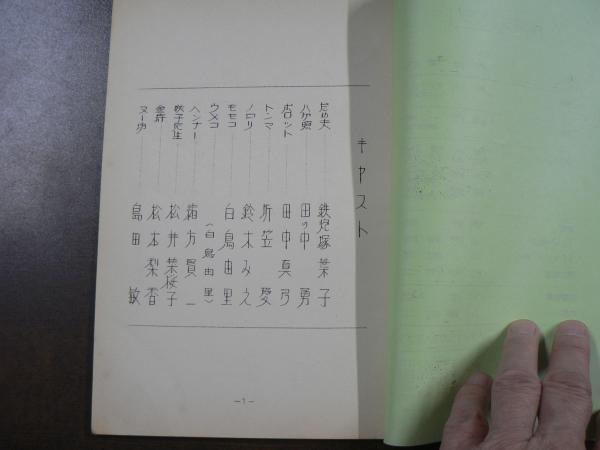 キャスト
だめ夫……鉄炮塚葉子
ハカ照……田の中勇
ボロット……田中真弓
トンマ……折笠愛
ノロリ……鈴木みえ
モモコ……白鳥由里
ウメコ……(白鳥由里)
ヘンナー……緒方賢一
咲子先生……松井菜桜子
金昇……松本梨香
ヌーボ……島田敏
—1—